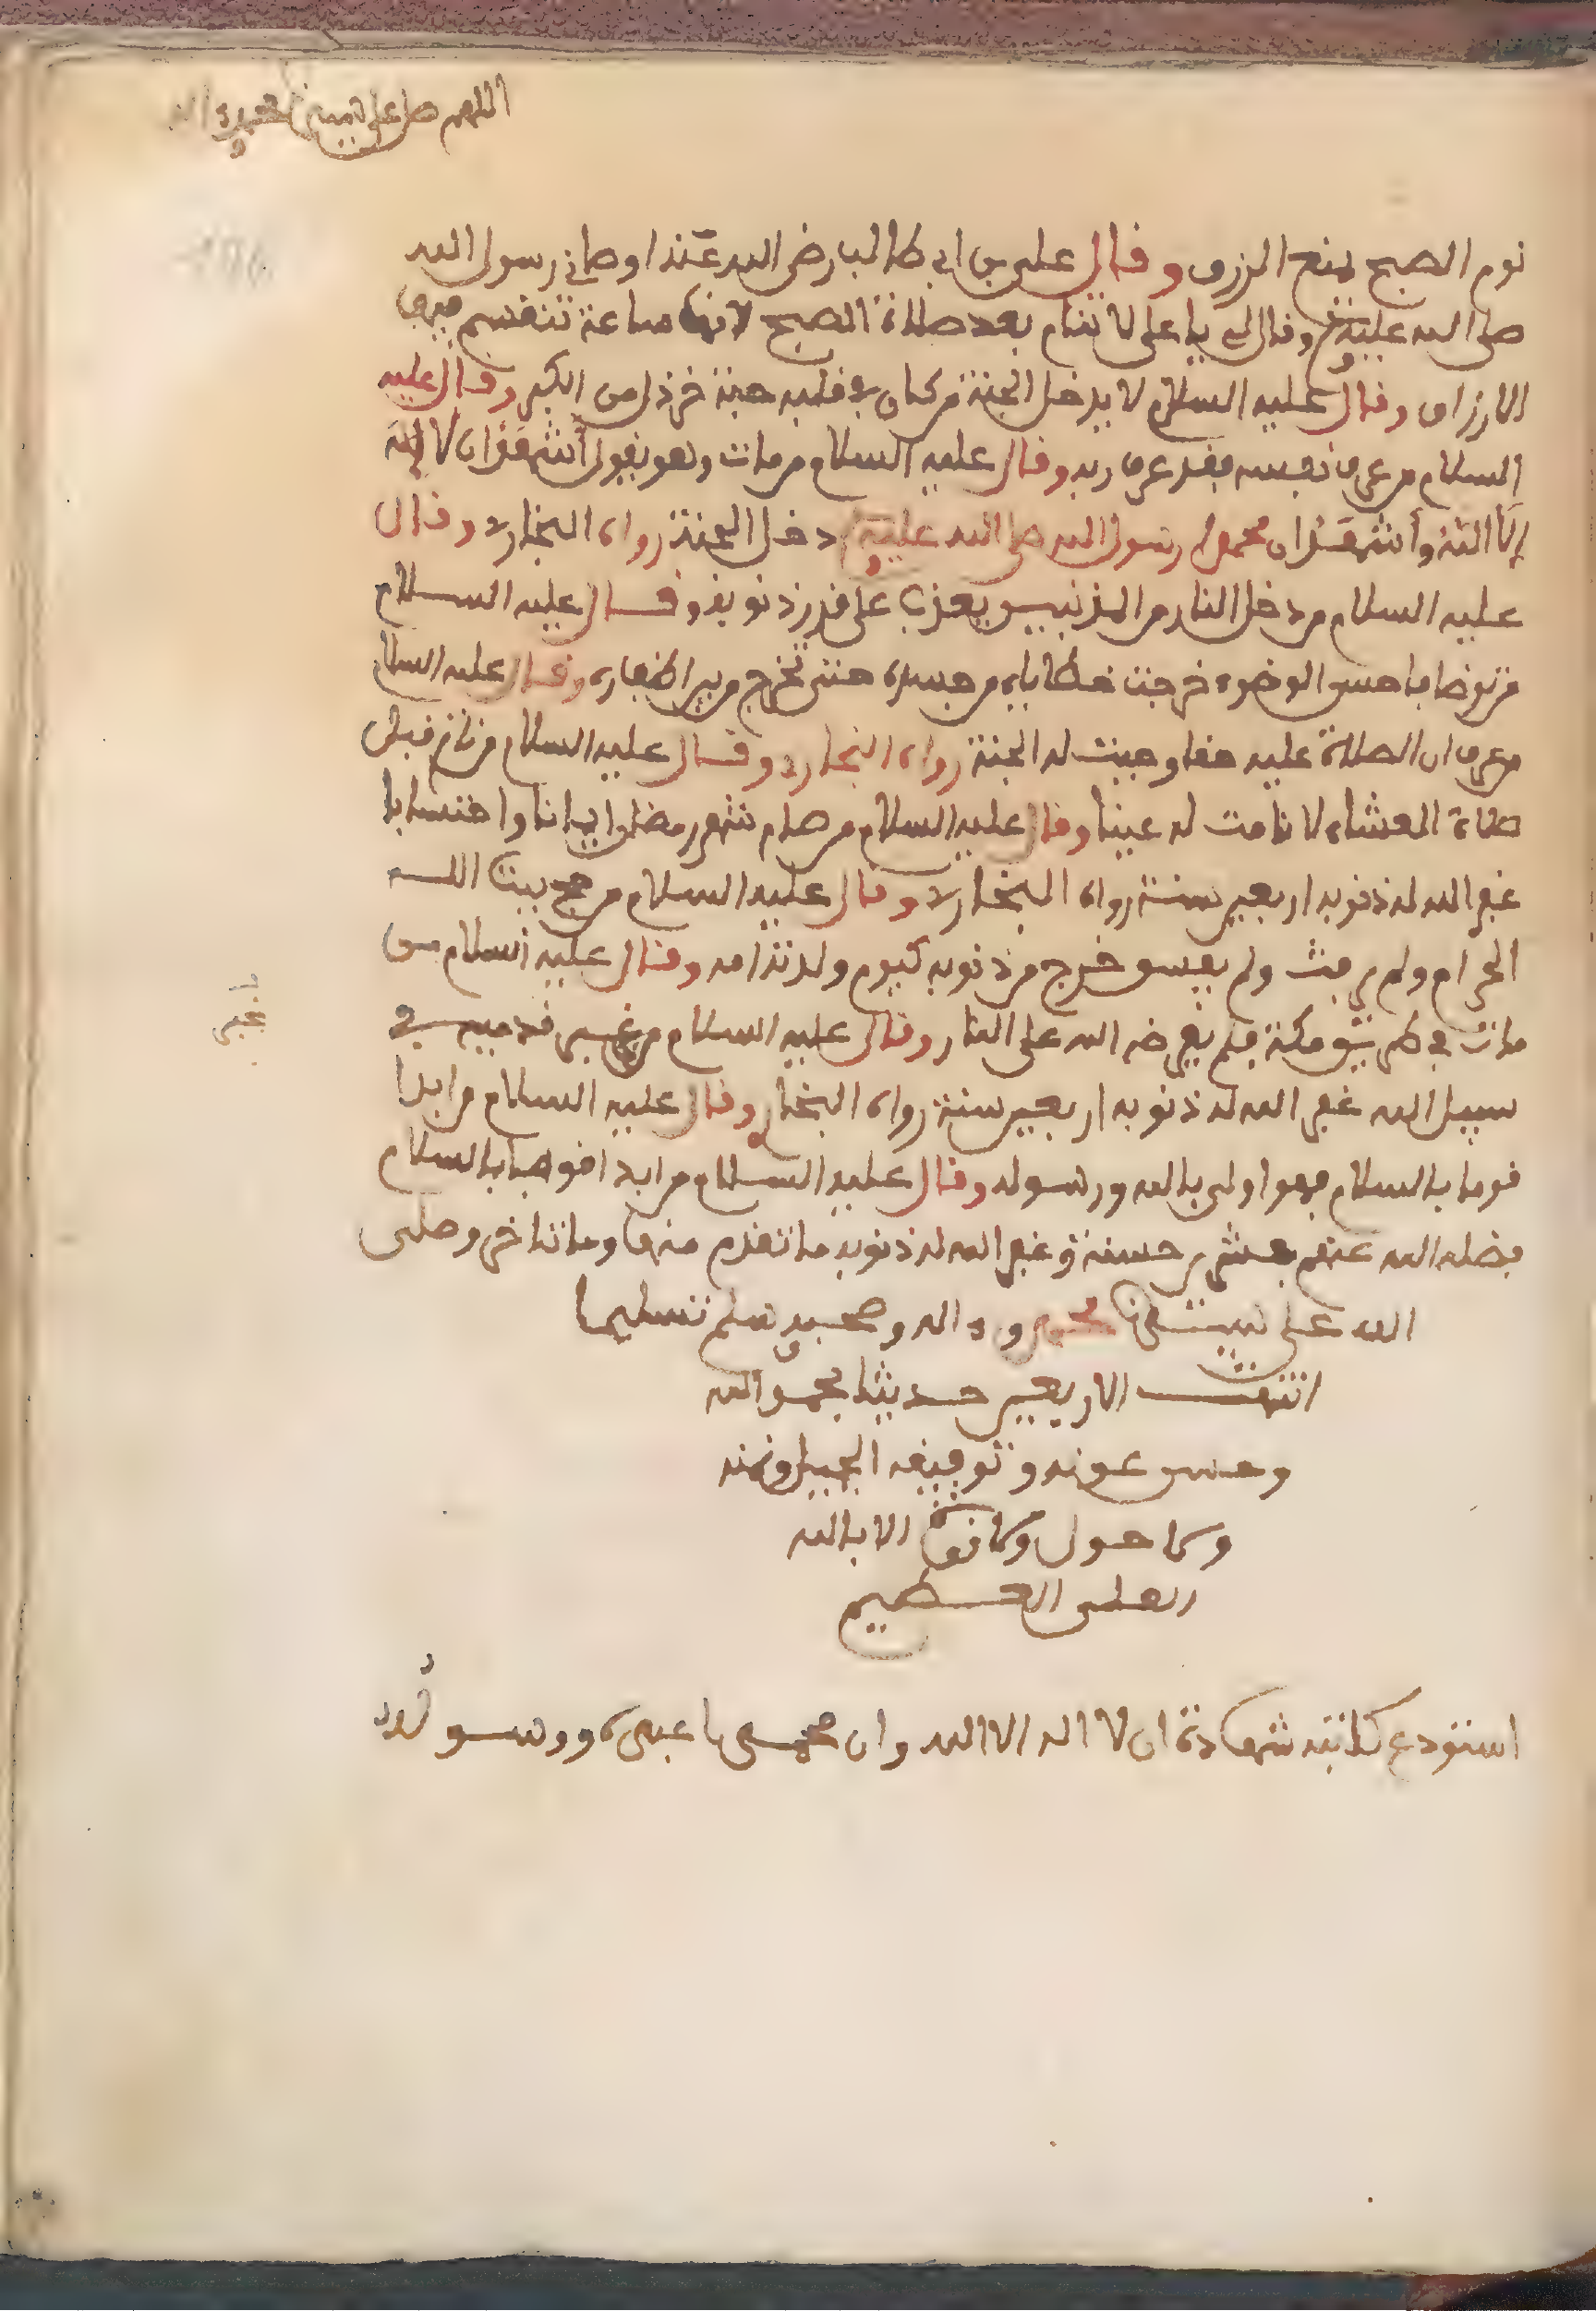 اللهم صل على نبينا محمد واله
نوم الصبح يمنع الرزق وقال علي بن ابي طالب رضي الله عنه اوصاني رسول الله
صلى الله عليه وسلم وقال لي يا علي لا تنام بعد صلاة الصبح لانها ساعة تنقسم فيها
الارزاق وقال عليه السلام لا يدخل الجنة من كان في قلبه حبة خردل من الكبر وقال عليه
السلام من عرف نفسه فقد عرف ربه وقال عليه السلام من مات وهو يقول أشهد ان لا إله
إلا الله وأشهد ان محمدا رسول الله صلى الله عليه وسلم دخل الجنة رواه البخاري وقال
عليه السلام من دخل النار من المذنبين يعذب على قدر ذنوبه وقال عليه السلام
من توضا فاحسن الوضوء خرجت خطاياه من جسده حتى تخرج من بين اظفاره وقال عليه السلام
من عرف ان الصلاة عليه حقا وجبت له الجنة رواه البخاري وقال عليه السلام من نام قبل
صلاة العشاء لا نامت له عينا وقال عليه السلام من صام شهر رمضان ايمانا واحتسابا
غفر الله له ذنوبه اربعين سنة رواه البخاري وقال عليه السلام من حج بيت الله
الحرام ولم يرفث ولم يفسق خرج من ذنوبه كيوم ولدته امه وقال عليه السلام من
مات في طريق مكة فلم يعرضه الله على النار وقال عليه السلام من غبر قدميه في
سبيل الله غفر الله له ذنوبه اربعين سنة رواه البخاري وقال عليه السلام من ابدا
قوما بالسلام فهو اولى بالله ورسوله وقال عليه السلام من ابدا اخوه بالسلام
فضله الله عنهم بعشر حسنة وغفر الله له ذنوبه ما تقدم منها وما تاخر وصلى
الله على نبينا محمد واله وصحبه وسلم تسليما
انتهت الاربعين حديثا بحمد الله
وحسن عونه وتوفيقه الجميل ومنه
ولا حول ولا قوة الا بالله
العلي العظيم
استودع كاتبه شهادة ان لا اله الا الله وان محمدا عبده ورسوله